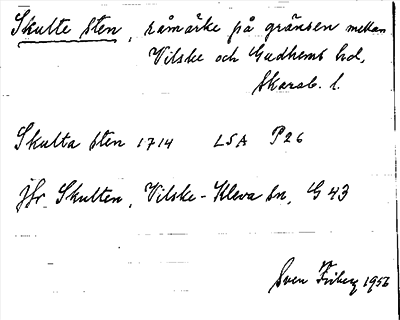 Skulte sten, råmärke på gränsen mellan
Vilske och Gudhems hd,
Skarab. l.
Skulta sten 1714 LSA P26
jfr Skulten, Vilske-Kleva sn, G 43
Sven Friberg 1956